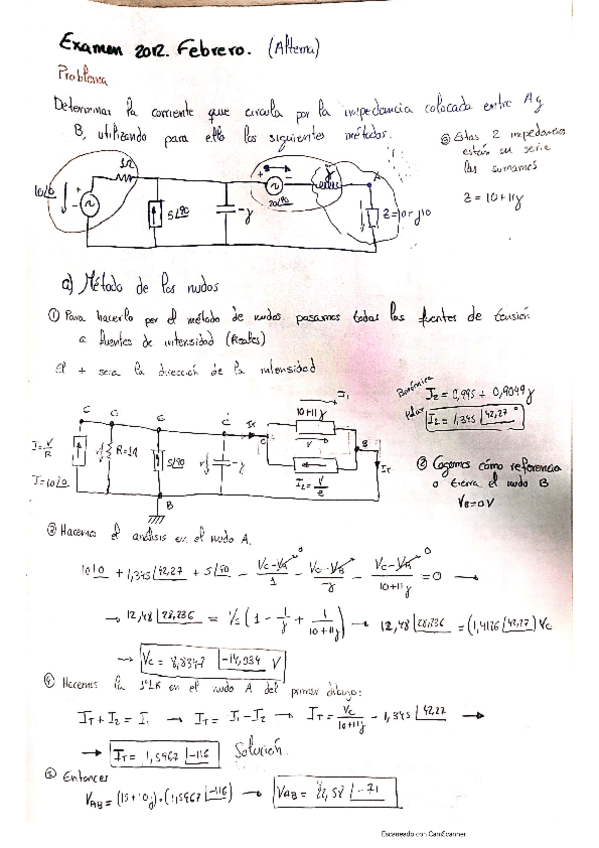 Examen 2012. Febrero. (Alterna)
Problema
Determinar la corriente que circula por la impedancia colocada entre A y
B, utilizando para ello los siguientes métodos.
③ Estas 2 impedancias
están en serie
las sumamos
Z = 10 + 11j
10∟0
1Ω
5∟90
-j
20∟90
j
A
Z=10+j10
a) Método de los nudos
① Para hacerlo por el método de nudos pasamos todas las fuentes de tensión
a fuentes de intensidad (Reales)
El + sera la dirección de la intensidad
Binómica
I₂ = 0,995 + 0,9049j
Polar
I₂ = 1,345 ∟42,27°
I₁
10+11j
C
C
C
C
I=V/R
I=10∟0
R=1Ω
5∟90
-j
I_T
C
V
B
I₂=V/Z
I_T
B
② Cogemos cómo referencia
o tierra el nudo B
V_B=0V
③ Hacemos el análisis en el nudo A.
10∟0 + 1,345∟42,27 + 5∟90 - (V_C-V_B)/1 - (V_C-V_B)/-j - (V_C-V_B)/(10+11j) = 0 →
→ 12,48∟28,236 = V_C (1 - 1/j + 1/(10+11j)) → 12,48∟28,236 = (1,4126∟42,27) V_C
→ V_C = 8,8348 ∟-14,034 V
④ Hacemos la 1ªLK en el nudo A del primer dibujo:
I_T + I₂ = I₁ → I_T = I₁ - I₂ → I_T = V_C/(10+11j) - 1,345∟42,27 →
→ I_T = 1,5967∟-116 Solución.
⑤ Entonces
V_AB = (10+10j)·(1,5967∟-116) → V_AB = 22,58∟-71
Escaneado con CamScanner